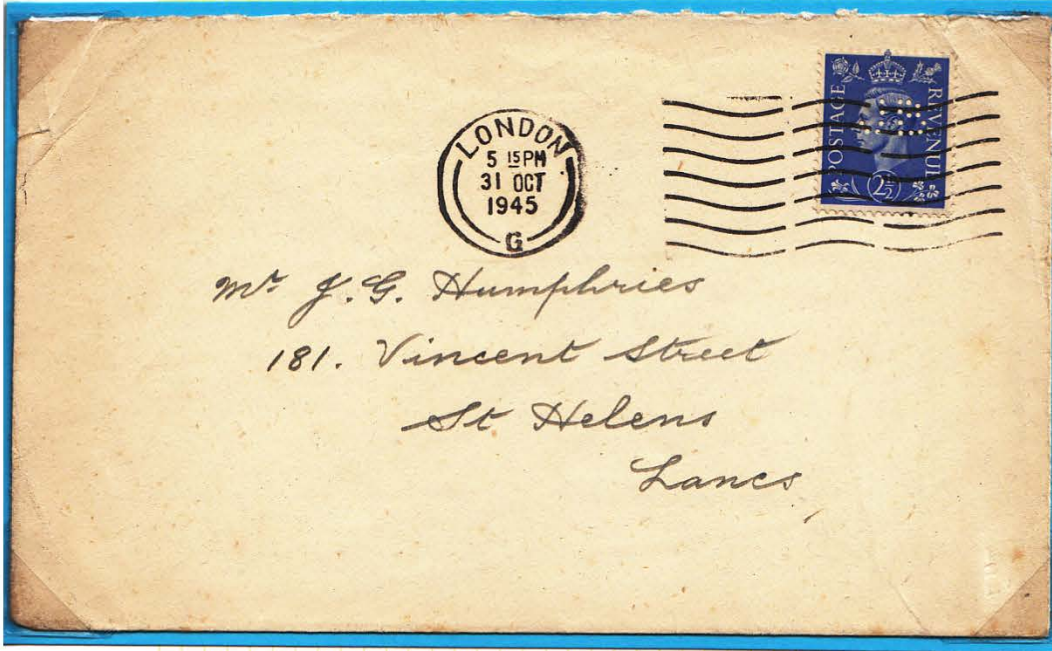 LONDON
5 15 PM
31 OCT
1945
G
POSTAGE
REVENUE
2½
Mr J. G. Humphries
181. Vincent Street
St Helens
Lancs